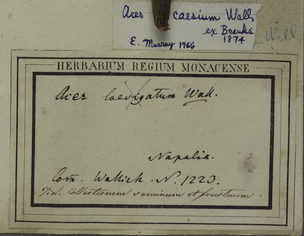 Acer caesium Wall.
ex Brandis
1874
E. Murray 1966
Will
HERBARIUM REGIUM MONACENSE
Acer laevigatum Wall.
Napalia.
Com. Wallich. N. 1223.
Vid. Collectionem seminum et fructuum.